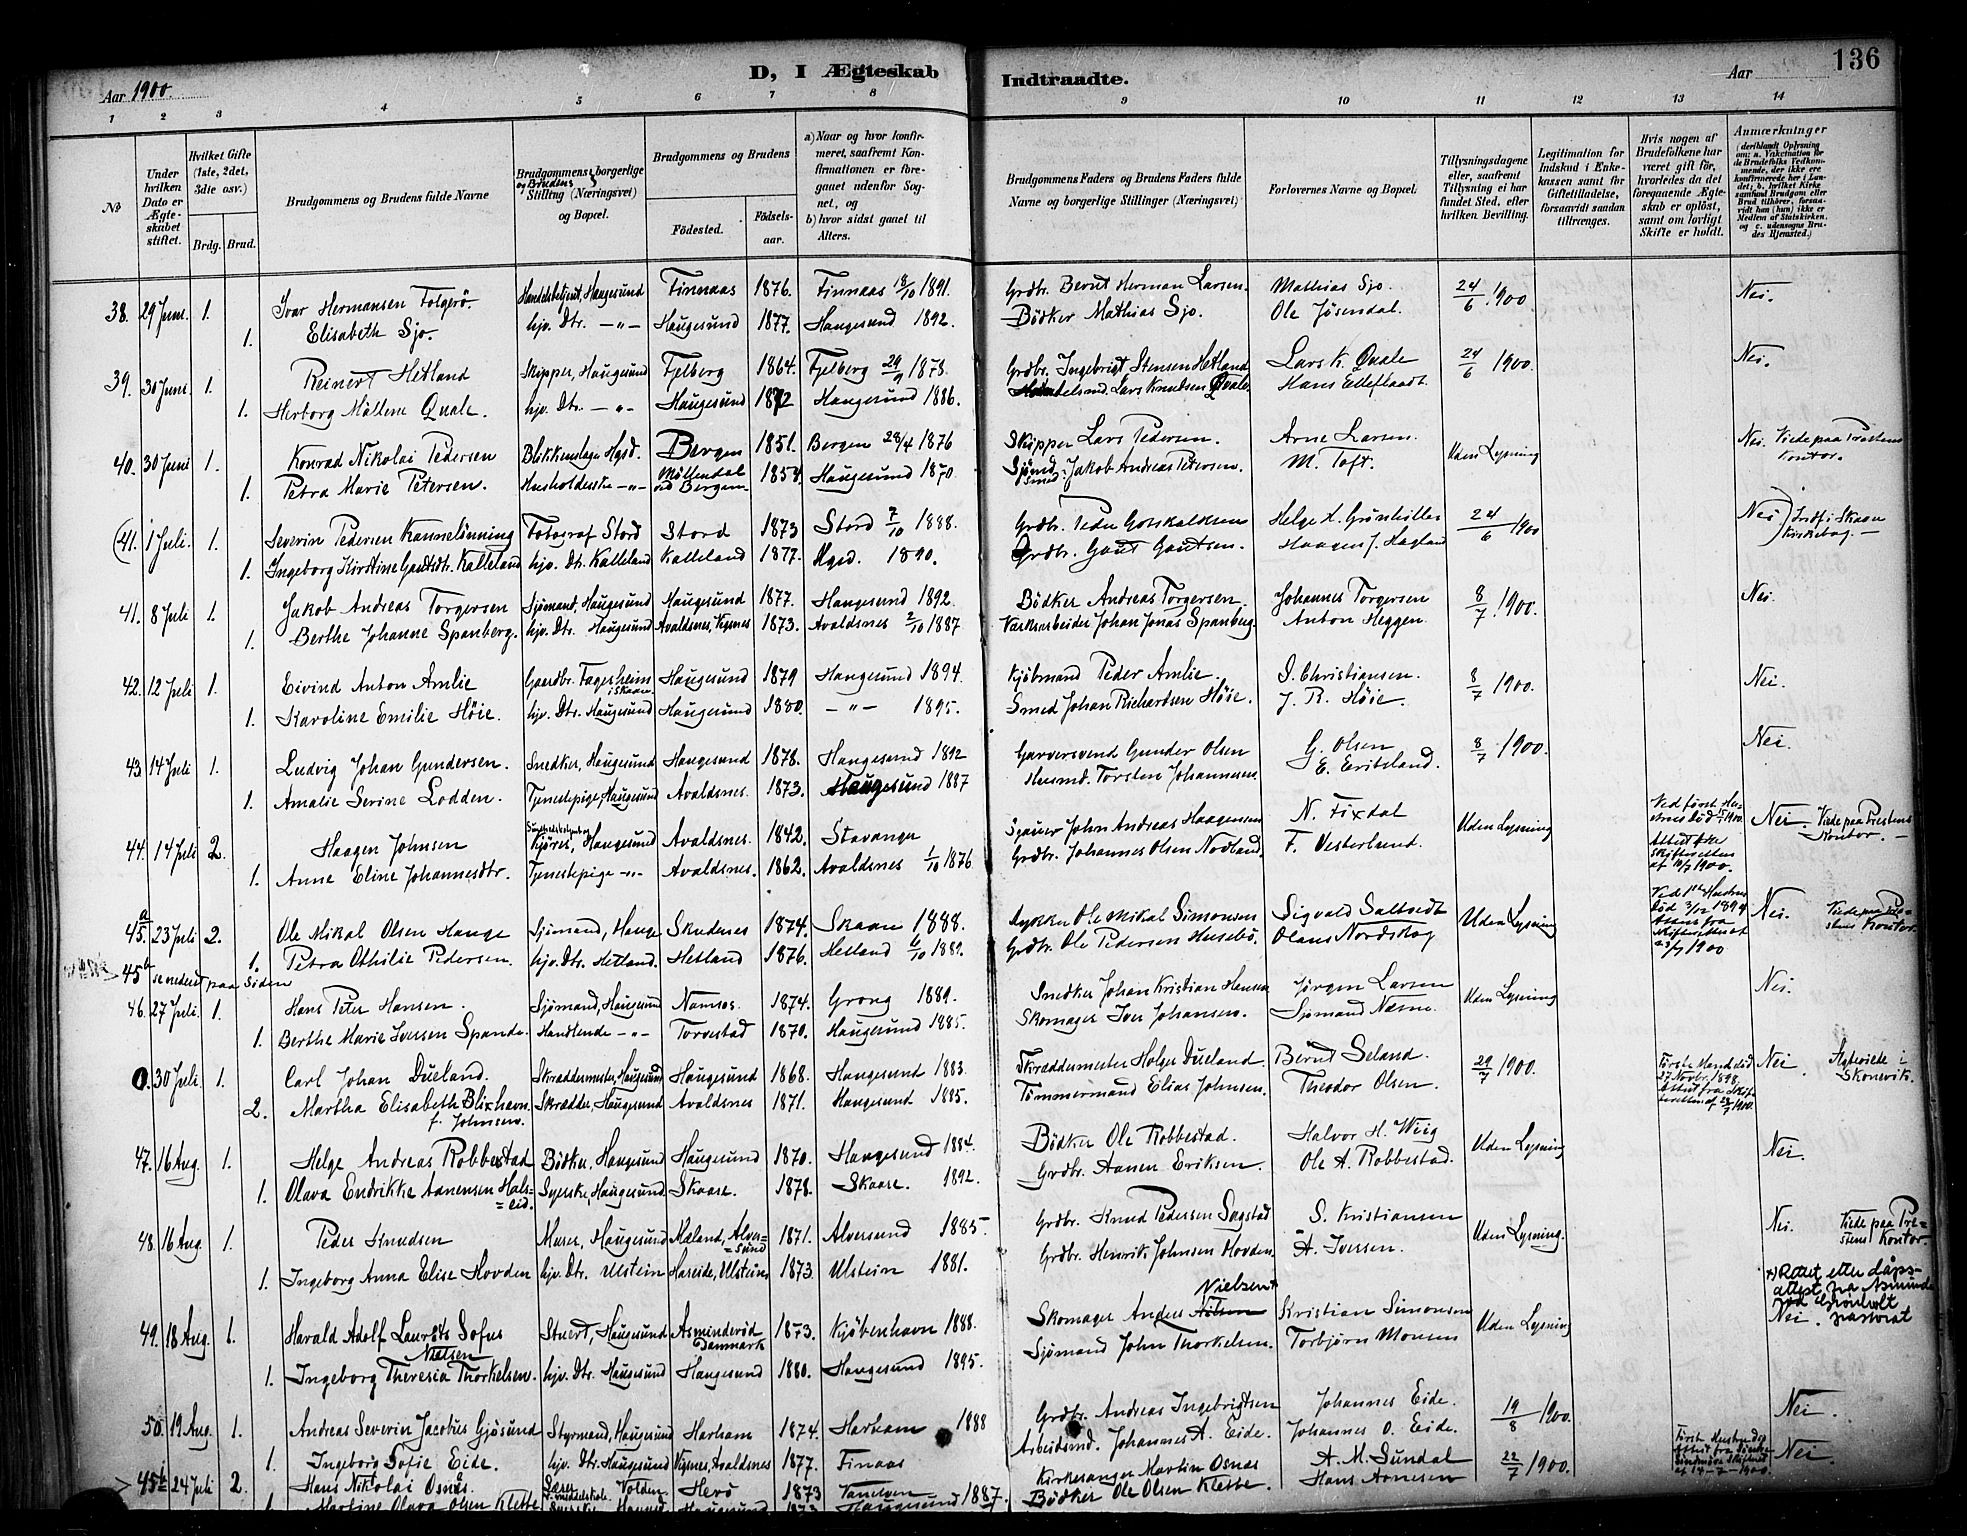 136
D, I Ægteskab Indtraadte.
Aar 1900. Aar
1 2 3 4 5 6 7 8 9 10 11 12 13 14
№
Under hvilken Dato er Ægteskabet stiftet.
Hvilket Gifte (1ste, 2det, 3die osv.)
Brdg. Brud.
Brudgommens og Brudens fulde Navne
Brudgommens og Brudens borgerlige Stilling (Næringsvei) og Bopæl.
Brudgommens og Brudens
Fødested.
Fødselsaar.
a) Naar og hvor konfirmeret, saafremt Konfirmationen er foregaaet udenfor Sognet, og
b) hvor sidst gaaet til Alters.
Brudgommens Faders og Brudens Faders fulde Navne og borgerlige Stillinger (Næringsvei)
Forlovernes Navne og Bopæl.
Tillysningsdagene eller, saafremt Tillysning ei har fundet Sted, efter hvilken Bevilling.
Legitimation for Indskud i Enkekassen samt for Giftetilladelse, forsaavidt saadan tiltrænges.
Hvis nogen af Brudefolkene har været gift før, hvorledes da det foregaaende Ægteskab er opløst, samt om lovligt Skifte er holdt.
Anmærkninger
38. 29 Juni. 1. Ivar Hermansen Folgerö. Handelsbetjent, Haugesund Finnaas 1876. Finnaas 18/10 1891. Grdbr. Bernt Herman Larsen. Mathias Sjo. 24/6 1900 Nei.
1. Elisabeth Sjo. hjv. Dtr. -"- Haugesund 1877. Haugesund 1892. Bödker Mathias Sjo. Ole Jösendal.
39. 30 Juni 1. Reinert Hetland Skipper, Haugesund Fjelberg 1864. Fjelberg 29/9 1878. Grdbr. Ingebrigt Stensen Hetland Lars K. Qvale 24/6 1900. Nei.
1. Herborg Mallene Qvale. hjv. Dtr. -"- Haugesund 1872 Haugesund 1886. Lars Knudsen Qvale. Hans
40. 30 Juni 1. Konrad Nikolai Pedersen Blikkenslager Hgsd. Bergen 1851. Bergen 28/4 1876 Skipper Lars Pedersen. Arne Larsen. Uden Lysning Nei. Viede paa Prestens Kontor.
1. Petra Marie Petersen. -"- Möllendal ved Bergen 1854. Haugesund 1870. Jakob Andreas Petersen. M. Toft.
(41. 1 Juli. 1. Severin Pedersen Kannelönning Fotograf Stord Stord 1873 Stord 7/10 1888. Grdbr. Peder Gotskalksen Helge A. Grönhiller 24/6 1900 Nei) Indf. i Skaare Kirkebog.
1. Ingeborg Kirstine Gautsdtr. Kalleland hjv. Dtr. Kalleland Kalleland 1877. Hgsd. 1890. Grdbr. Gaut Gautsen. Haagen J. Hagland
41. 8 Juli 1. Jakob Andreas Torgersen Sjømand, Haugesund Haugesund 1877. Haugesund 1892. Bödker Andreas Torgersen. Johannes Torgersen 8/7 1900. Nei.
1. Berthe Johanne Spanberg. hjv. Dtr. Haugesund Avaldsnes, Vigsnes 1873. Avaldsnes 2/10 1887 Værksarbeider Johan Jonas Spanberg. Anton Heggen.
42. 12 Juli 1. Eivind Anton Amlie Gaardbr. Fagerheim i Skaare Haugesund 1879 Haugesund 1894. Kjöbmand Peder Amlie. S. Christiansen. 8/7 1900. Nei.
1. Karoline Emilie Höie. hjv. Dtr. Haugesund Haugesund 1880. -"- 1895. Smed Johan Richardsen Höie. J. R. Höie.
43. 14 Juli 1. Ludvig Johan Gundersen. Snedker, Haugesund Haugesund 1878. Haugesund 1892 Garversvend Gunder Olsen G. Olsen 8/7 1900. Nei.
1. Amalie Serine Lodden. Tjenestepige, Haugesund Avaldsnes. 1873. Haugesund 1887 Husmd. Torsten Johannesen. E. Eritsland.
44. 14 Juli 2. Haagen Johnsen Haugesund Avaldsnes. 1842. Stavanger John Andreas Haagensen N. Fixdal Uden Lysning Ved först Hustrus död 1900. Attest fra Skifteretten af 14/7 1900. Nei. Viede paa Prestens Kontor.
1. Anne Eline Johannesdtr. Tjenestepige -"- Avaldsnes. 1862. Avaldsnes 1/10 1876 Grdbr. Johannes Olsen Nodland. F. Vesterlund.
45.a 23 Juli 2. Ole Mikal Olsen Hauge Sjømand, Hauge Skudenes 1874. Skaare 1888. Ole Mikal Simonsen Sigvald Saltvedt Uden Lysning Ved 1ste Hustrus Död 3/12 1899 Attest fra Skifteretten af 23/7 1900 Nei. Viede paa Prestens Kontor.
1. Petra Othilie Pedersen. hjv. Dtr. Hetland. Hetland 1876. Hetland 6/10 1889. Grdbr. Ole Pedersen Husebö. Olaus Nordskog
45b se nederst paa Siden
46. 27 Juli. 1. Hans Peter Hansen. Sjømand, Haugesund Namsos. 1874. Grong 1889. Snedker Johan Kristian Hansen Jörgen Larsen Uden Lysning Nei.
1. Berthe Marie Iversen Spande. Handlende -"- Torvestad 1870. Haugesund 1885. Skomager Iver Johansen. Sjømand Næsne.
0. 30 Juli. 1. Carl Johan Dueland. Skræddermester, Haugesund Haugesund 1868. Haugesund 1883. Skræddermester Helge Dueland Bernt Seland. 29/7 1900. Förste Mand död 27 Novbr. 1898. Attest fra Skifteretten af 28/7 1900. Nei. Ægteviede i Skonevik.
2. Martha Elisabeth Blixhavn f. Johnsen. Skrædder, Haugesund Avaldsnes 1871. Haugesund 1885. Tömmermand Elias Johnsen. Theodor Olsen.
47. 16 Aug. 1. Helge Andreas Robbestad Bödker, Haugesund Haugesund 1870. Haugesund 1884. Bödker Ole Robbestad. Halvor H. Wiig Uden Lysning Nei.
1. Olava Endrikke Aanensen Hals=eid. Syerske, Haugesund. Skaare. 1878. Skaare. 1892. Grdbr. Aanen Eriksen. Ole A. Robbestad.
48. 16 Aug. 1. Peder Knudsen Murer, Haugesund Mæland, Alver=sund 1871. Alversund 1885. Grdbr. Knud Pedersen Sagstad S. Kristiansen Uden Lysning. Nei. Viede paa Prestens Kontor.
1. Ingeborg Anna Elise Hovden hjv. Dtr. Ulstein Hareide, Ulstein 1873. Ulstein 1881. Grdbr. Henrik Johnsen Hovden. A. Iversen.
x) Rettet etter dåpsattest fra Asminderød Grönholt pastorat
49. 18 Aug. 1. Harald Adolf Laurits Sofus Nielsen Stuert, Haugesund Asminderöd Danmark 1873. Kjöbenhavn 1888. Skomager Anders Nielsen x Kristian Simonsen Uden Lysning Nei.
1. Ingeborg Theresia Thorkelsen. hjv. Dtr. Haugesund Haugesund 1880. Haugesund 1895. Sjømand John Thorkelsen. Torbjørn Monsen
50. 19 Aug. 1. Andreas Severin Jacobus Gjøsund Styrmand, Haugesund Harham 1874. Harham 1888 Grdbr. Andreas Ingebrigtsen Johannes Eide. 19/8 1900. Nei.
1. Ingeborg Sofie Eide. hjv. Dtr. Haugesund Vigsnes, Avaldsnes 1877. Finaas Arbeidsmd. Johannes A. Eide. Johannes O. Eide.
45b 24 Juli 2. Hans Nikolai Osnæs. Volden. Herö 1873 Kirkesanger Martin Osnæs A. M. Sundal 22/7 1900. 14-7-1900. Nei.
Martine Olava Olsen Kletbe 1873 Haugesund 1887. Bödker Ole Olsen Kletbe. Hans Arnesen